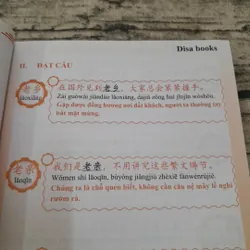 Disa books
II. ĐẶT CÂU
老乡
lǎoxiāng
在国外见到老乡，大家总会紧紧握手。
Zài guówài jiàndào lǎoxiāng, dàjiā zǒng huì jǐnjǐn wòshǒu.
Gặp được đồng hương nơi đất khách, người ta thường tay
bắt mặt mừng.
老亲
lǎoqīn
我们是老亲，不用讲究这些繁文缛节。
Wǒmen shì lǎoqīn, bùyòng jiǎngjiù zhèxiē fánwénrùjié.
Chúng ta là chỗ quen biết, không cần câu nệ mấy lễ nghi
rườm rà.